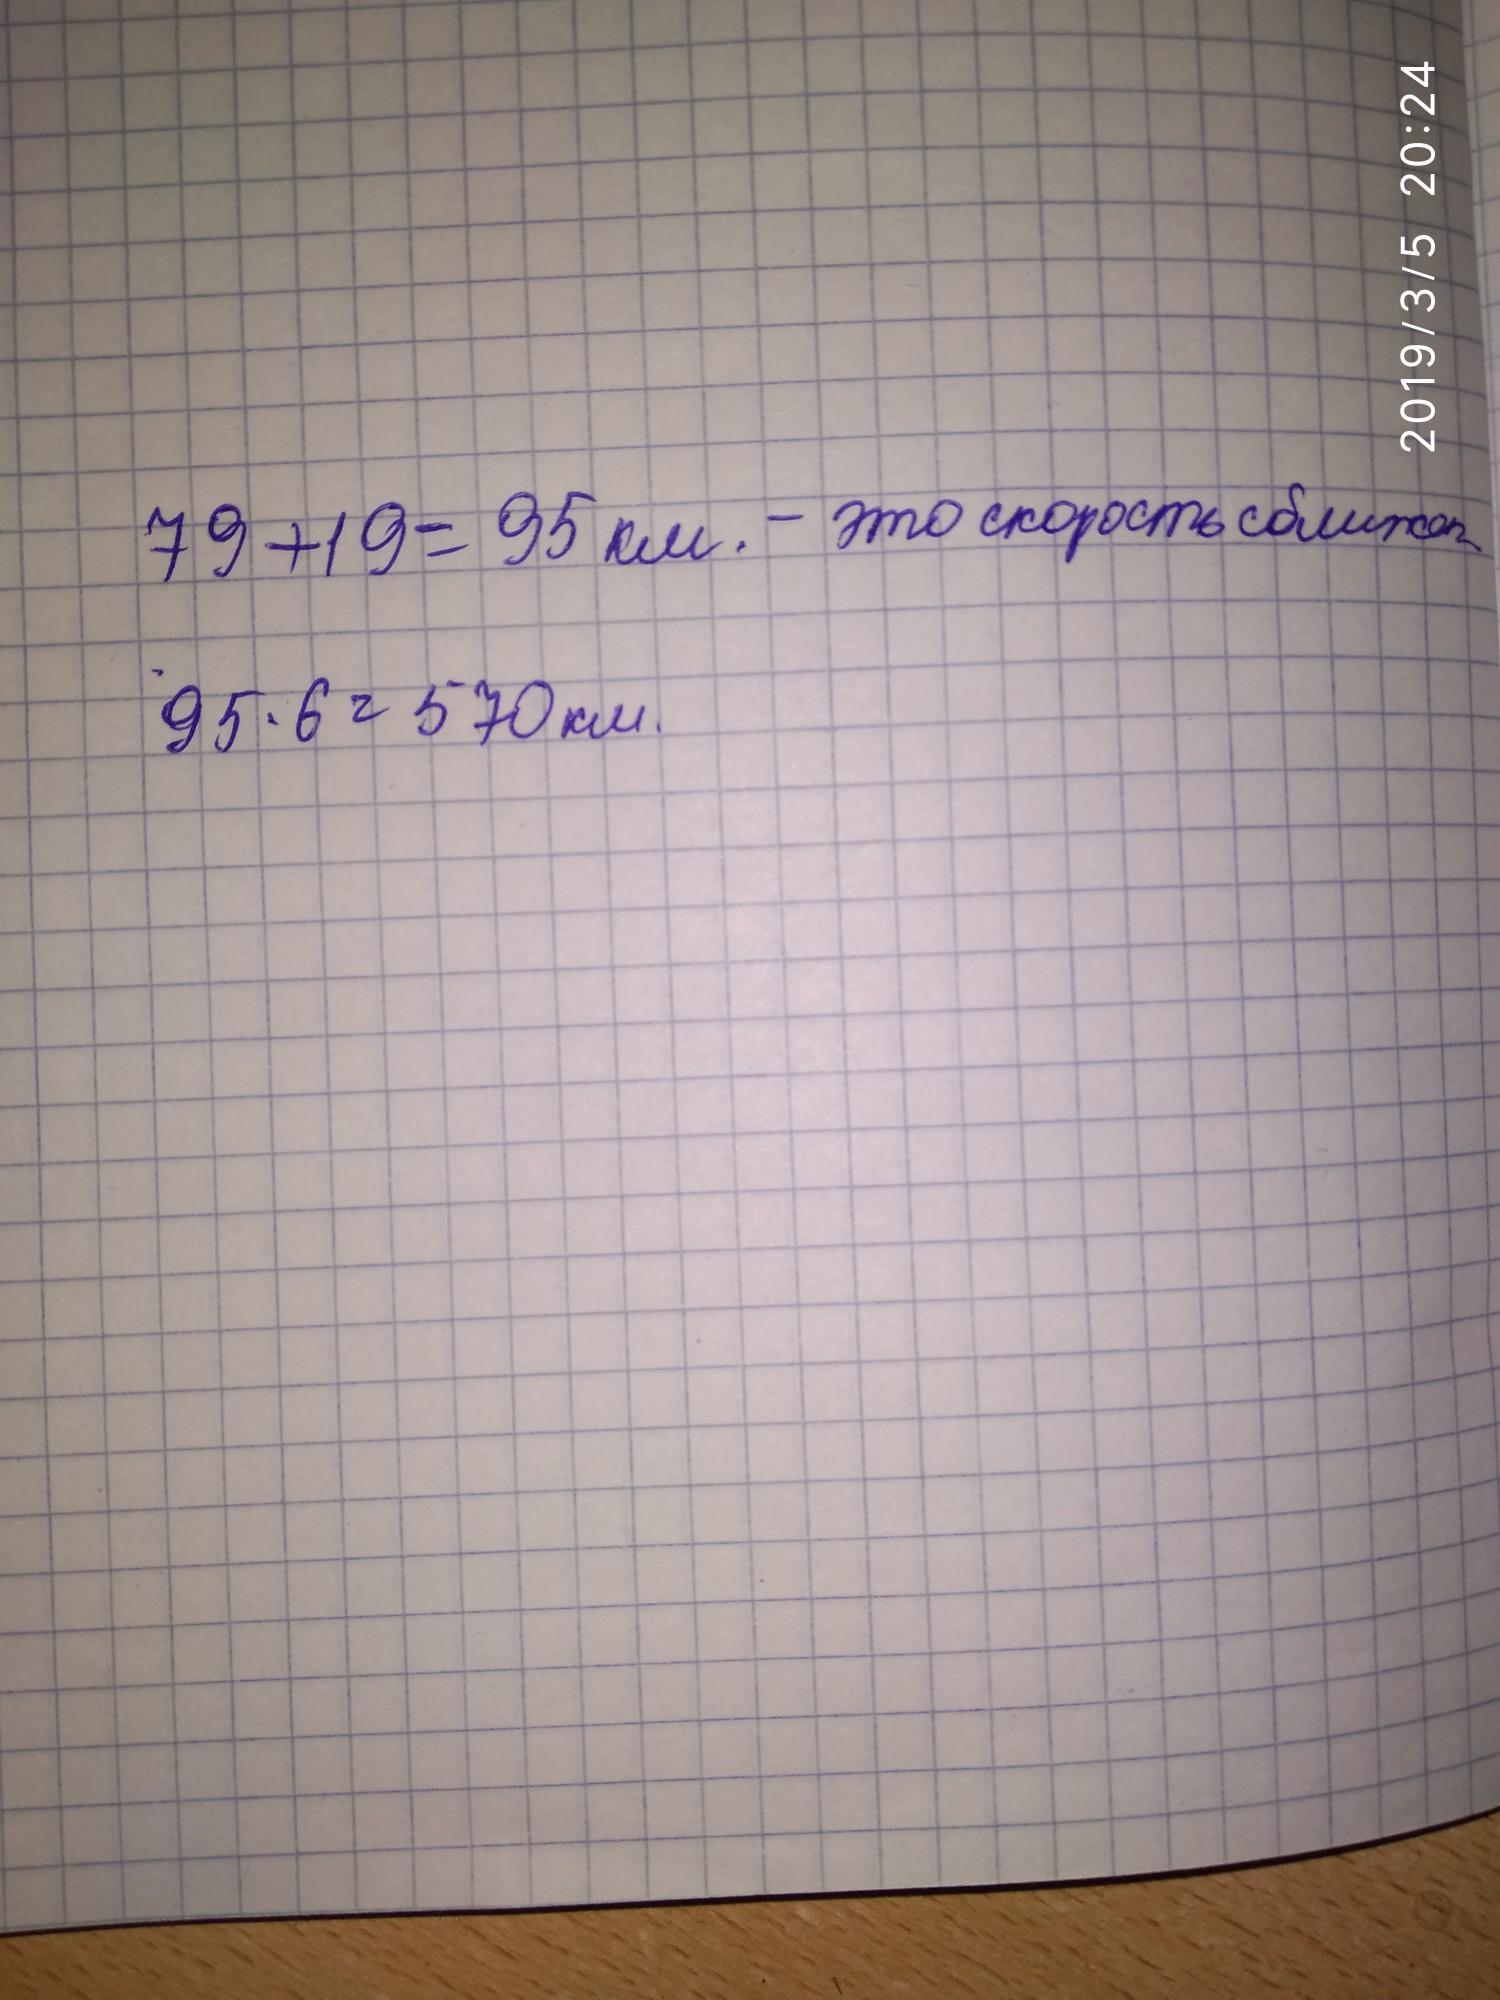 2019/3/5 20:24
79+19= 95 км. - это скорость сближен
95·6= 570 км.